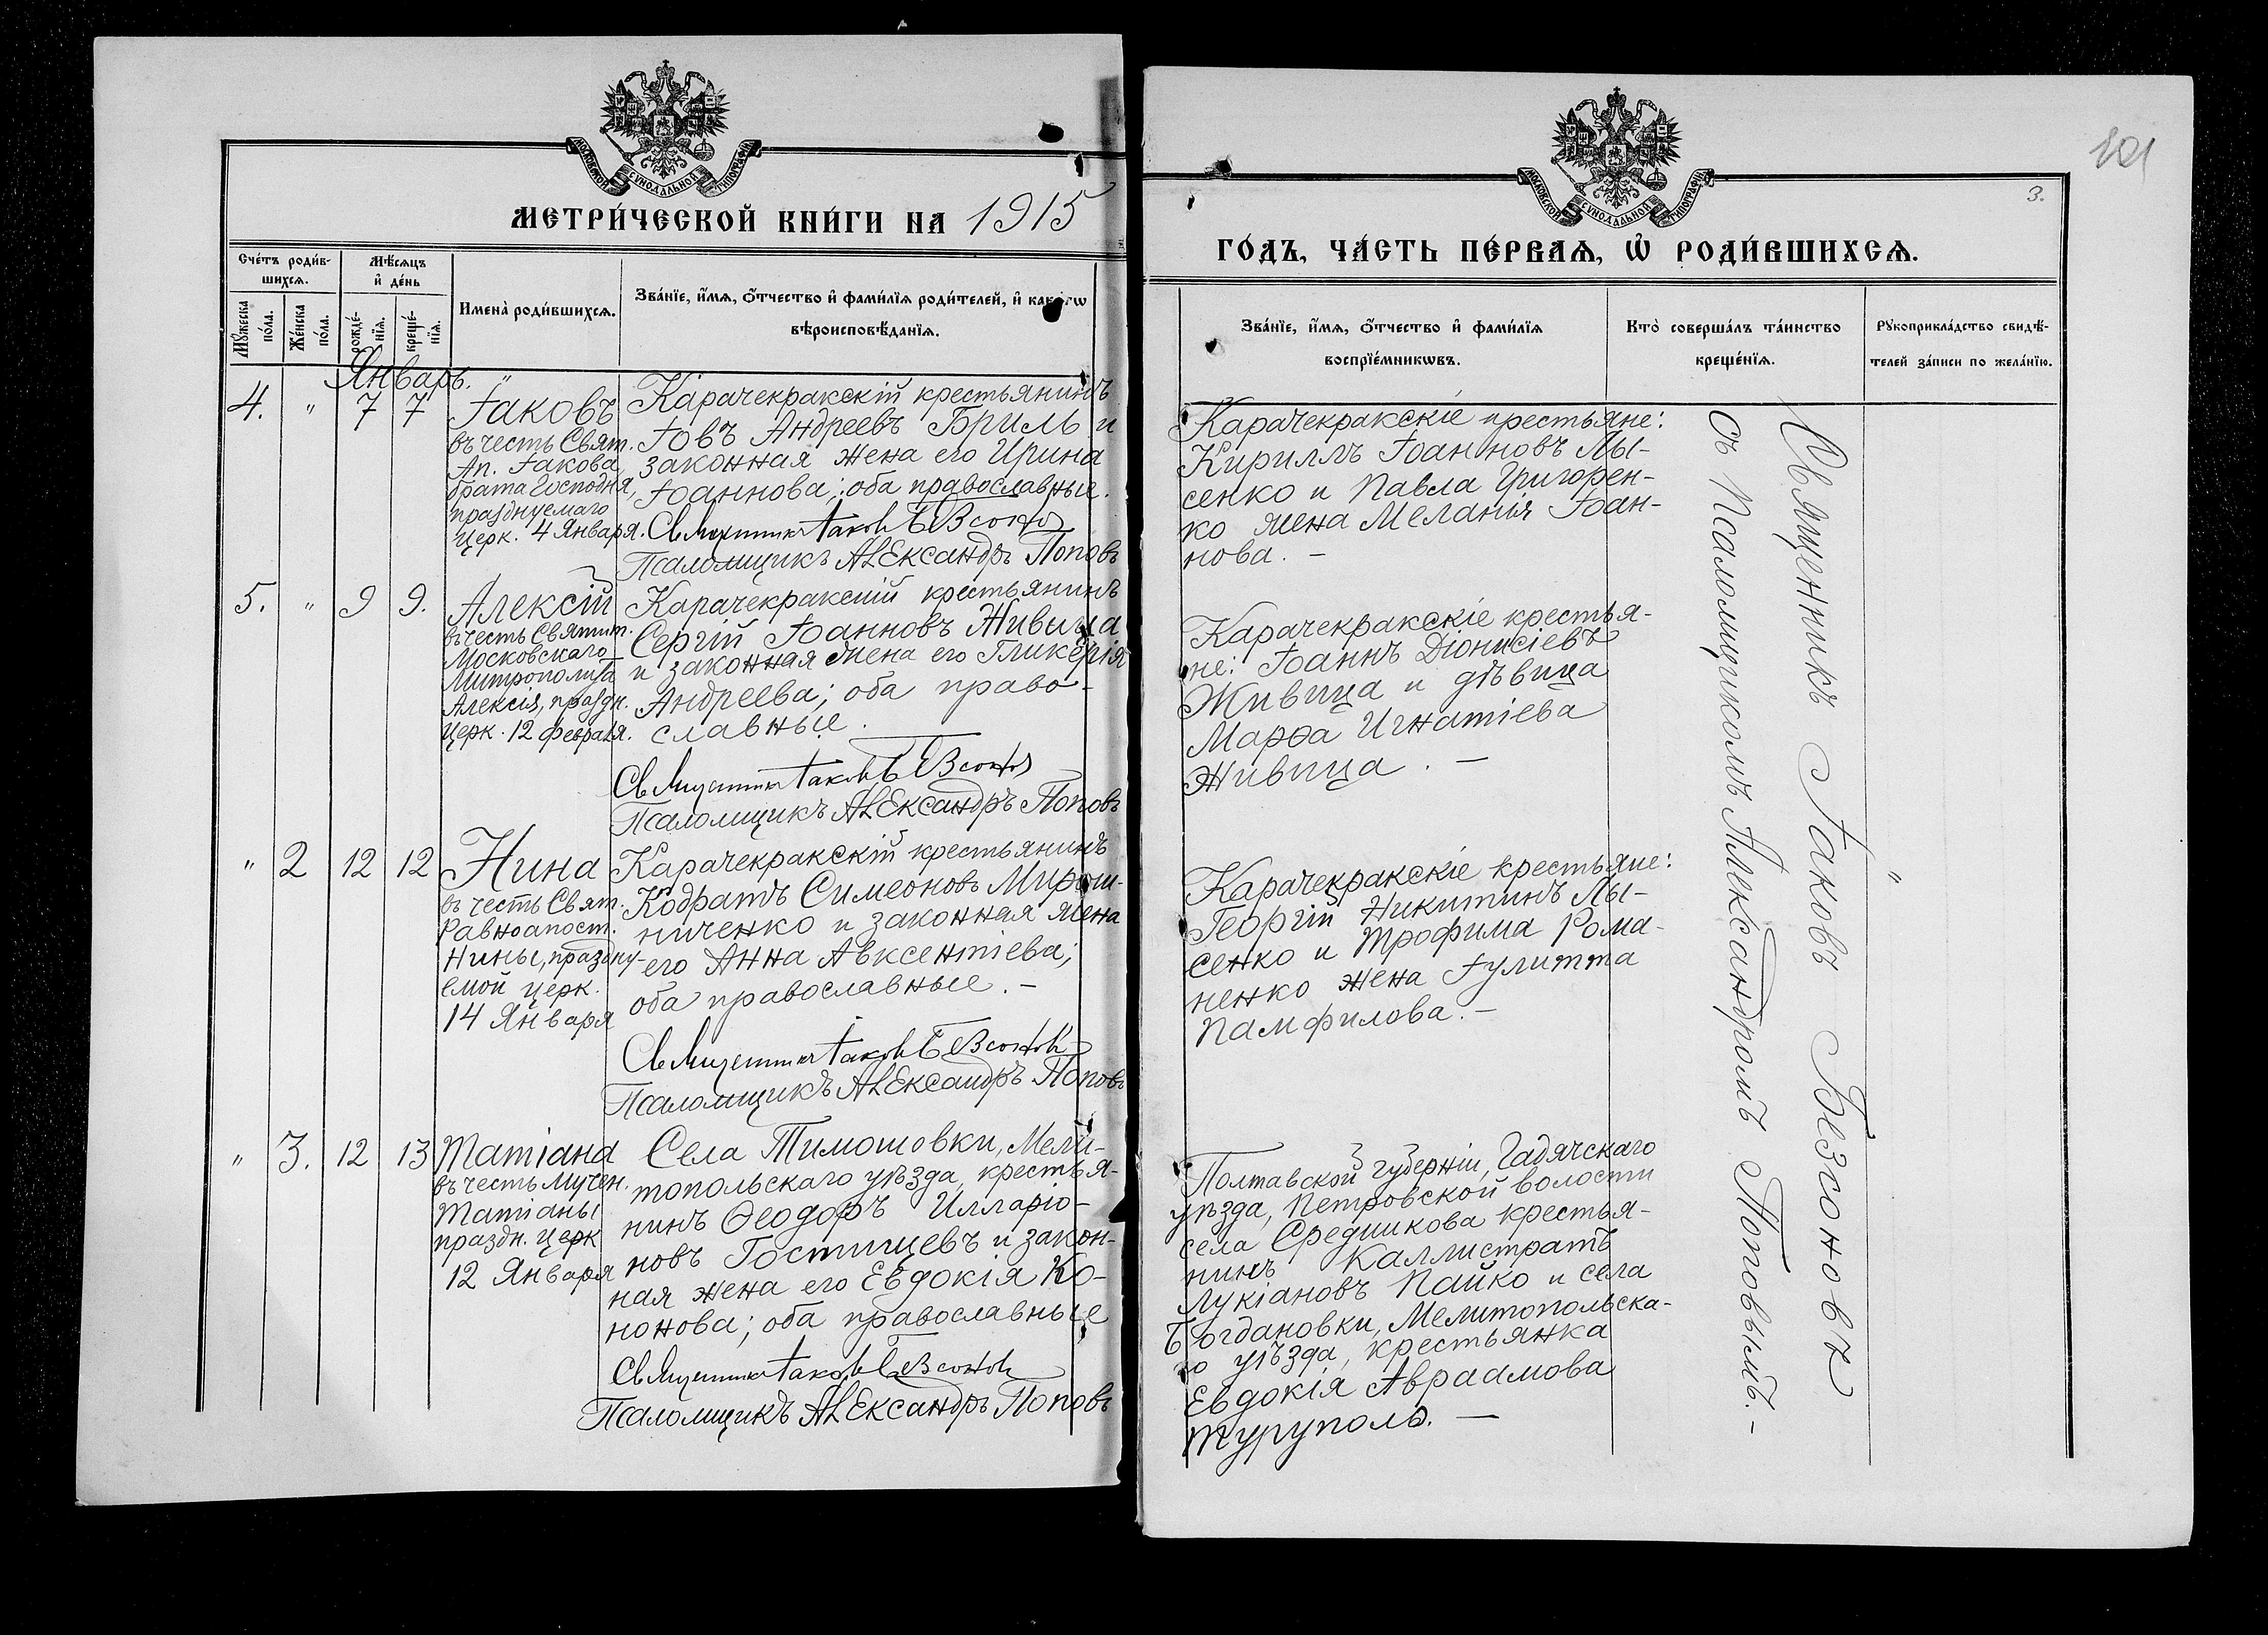 МОСКОВСКОЙ СѴНОДАЛЬНОЙ ТИПОГРАФІИ
МЕТРИ́ЧЕСКОЙ КНИ́ГИ НА 1915
Сче́тъ роди́в-
шихсѧ.
Мѣ́сѧцъ
и҆ де́нь
Мꙋ́жеска
по́ла.
Же́нска
по́ла.
рожде́-
нїѧ.
креще́-
нїѧ.
Имена̀ роди́вшихсѧ.
Зва́нїе, и҆́мѧ, ѻ҆́тчество и҆ фами́лїѧ роди́телей, и҆ како́гѡ
вѣроисповѣ́данїѧ.
Январь. "
4. " 7 7
Іаковъ
въ честь Свят.
Ап. Іакова,
брата Господня,
празднуемаго
церк. 4 Января.
Карачекракскій крестьянинъ
Іовъ Андреевъ Бриль и
законная жена его Ирина
Іоаннова; оба православные.
Священникъ Іаковъ Безсоновъ
Псаломщикъ Александръ Поповъ
5. " 9 9.
Алексій
въ честь Святит.
Московскаго
Митрополита
Алексія, праздн.
церк. 12 февраля.
Карачекракскій крестьянинъ
Сергій Іоанновъ Живица
и законная жена его Гликерія
Андреева; оба право-
славные.
Священникъ Іаковъ Безсоновъ
Псаломщикъ Александръ Поповъ
" 2 12 12
Нина
въ честь Свят.
Равноапост.
Нины, праздну-
емой церк.
14 Января
Карачекракскій крестьянинъ
Кодратъ Симеоновъ Мирош-
ниченко и законная жена
его Анна Авксентіева;
оба православные. –
Священникъ Іаковъ Безсоновъ
Псаломщикъ Александръ Поповъ
" 3. 12 13
Татіана
въ честь Мучен.
Татіаны
праздн. церк
12 Января
Села Тимошовки, Мели-
топольскаго уѣзда, крестья-
нинъ Ѳеодоръ Илларіо-
новъ Гостищевъ и закон-
ная жена его Евдокія Ко-
нонова; оба православные
Священникъ Іаковъ Безсоновъ
Псаломщикъ Александръ Поповъ
101
3.
МОСКОВСКОЙ СѴНОДАЛЬНОЙ ТИПОГРАФІИ
ГО́ДЪ, ЧА́СТЬ ПЕ́РВАѦ, Ѡ҆ РОДИ́ВШИХСѦ.
Зва́нїе, и҆́мѧ, ѻ҆́тчество и҆ фами́лїѧ
воспрїе́мникѡвъ.
Кто̀ соверша́лъ та́инство
креще́нїѧ.
Рꙋкоприкла́дство свидѣ́-
телей за́писи по жела́нїю.
Карачекракскіе крестьяне:
Кириллъ Іоанновъ Лы-
сенко и Павла Григорен-
ко жена Меланія Іоан-
нова. –
Карачекракскіе крестья-
не: Іоаннъ Діонисіевъ
Живица и дѣвица
Марѳа Игнатіева
Живица. –
Карачекракскіе крестьяне:
Георгій Никитинъ Лы-
сенко и Трофима Рома-
ненко жена Іулитта
Памфилова. –
Полтавской губерніи, Гадячскаго
уѣзда, Петровской волости
села Средникова крестья-
нинъ Каллистратъ
Лукіановъ Пайко и села
Богдановки, Мелитопольска-
го уѣзда, крестьянка
Евдокія Авраамова
Туруполь. –
Священникъ Іаковъ Безсоновъ
съ Псаломщикомъ Александромъ Поповымъ. –
"